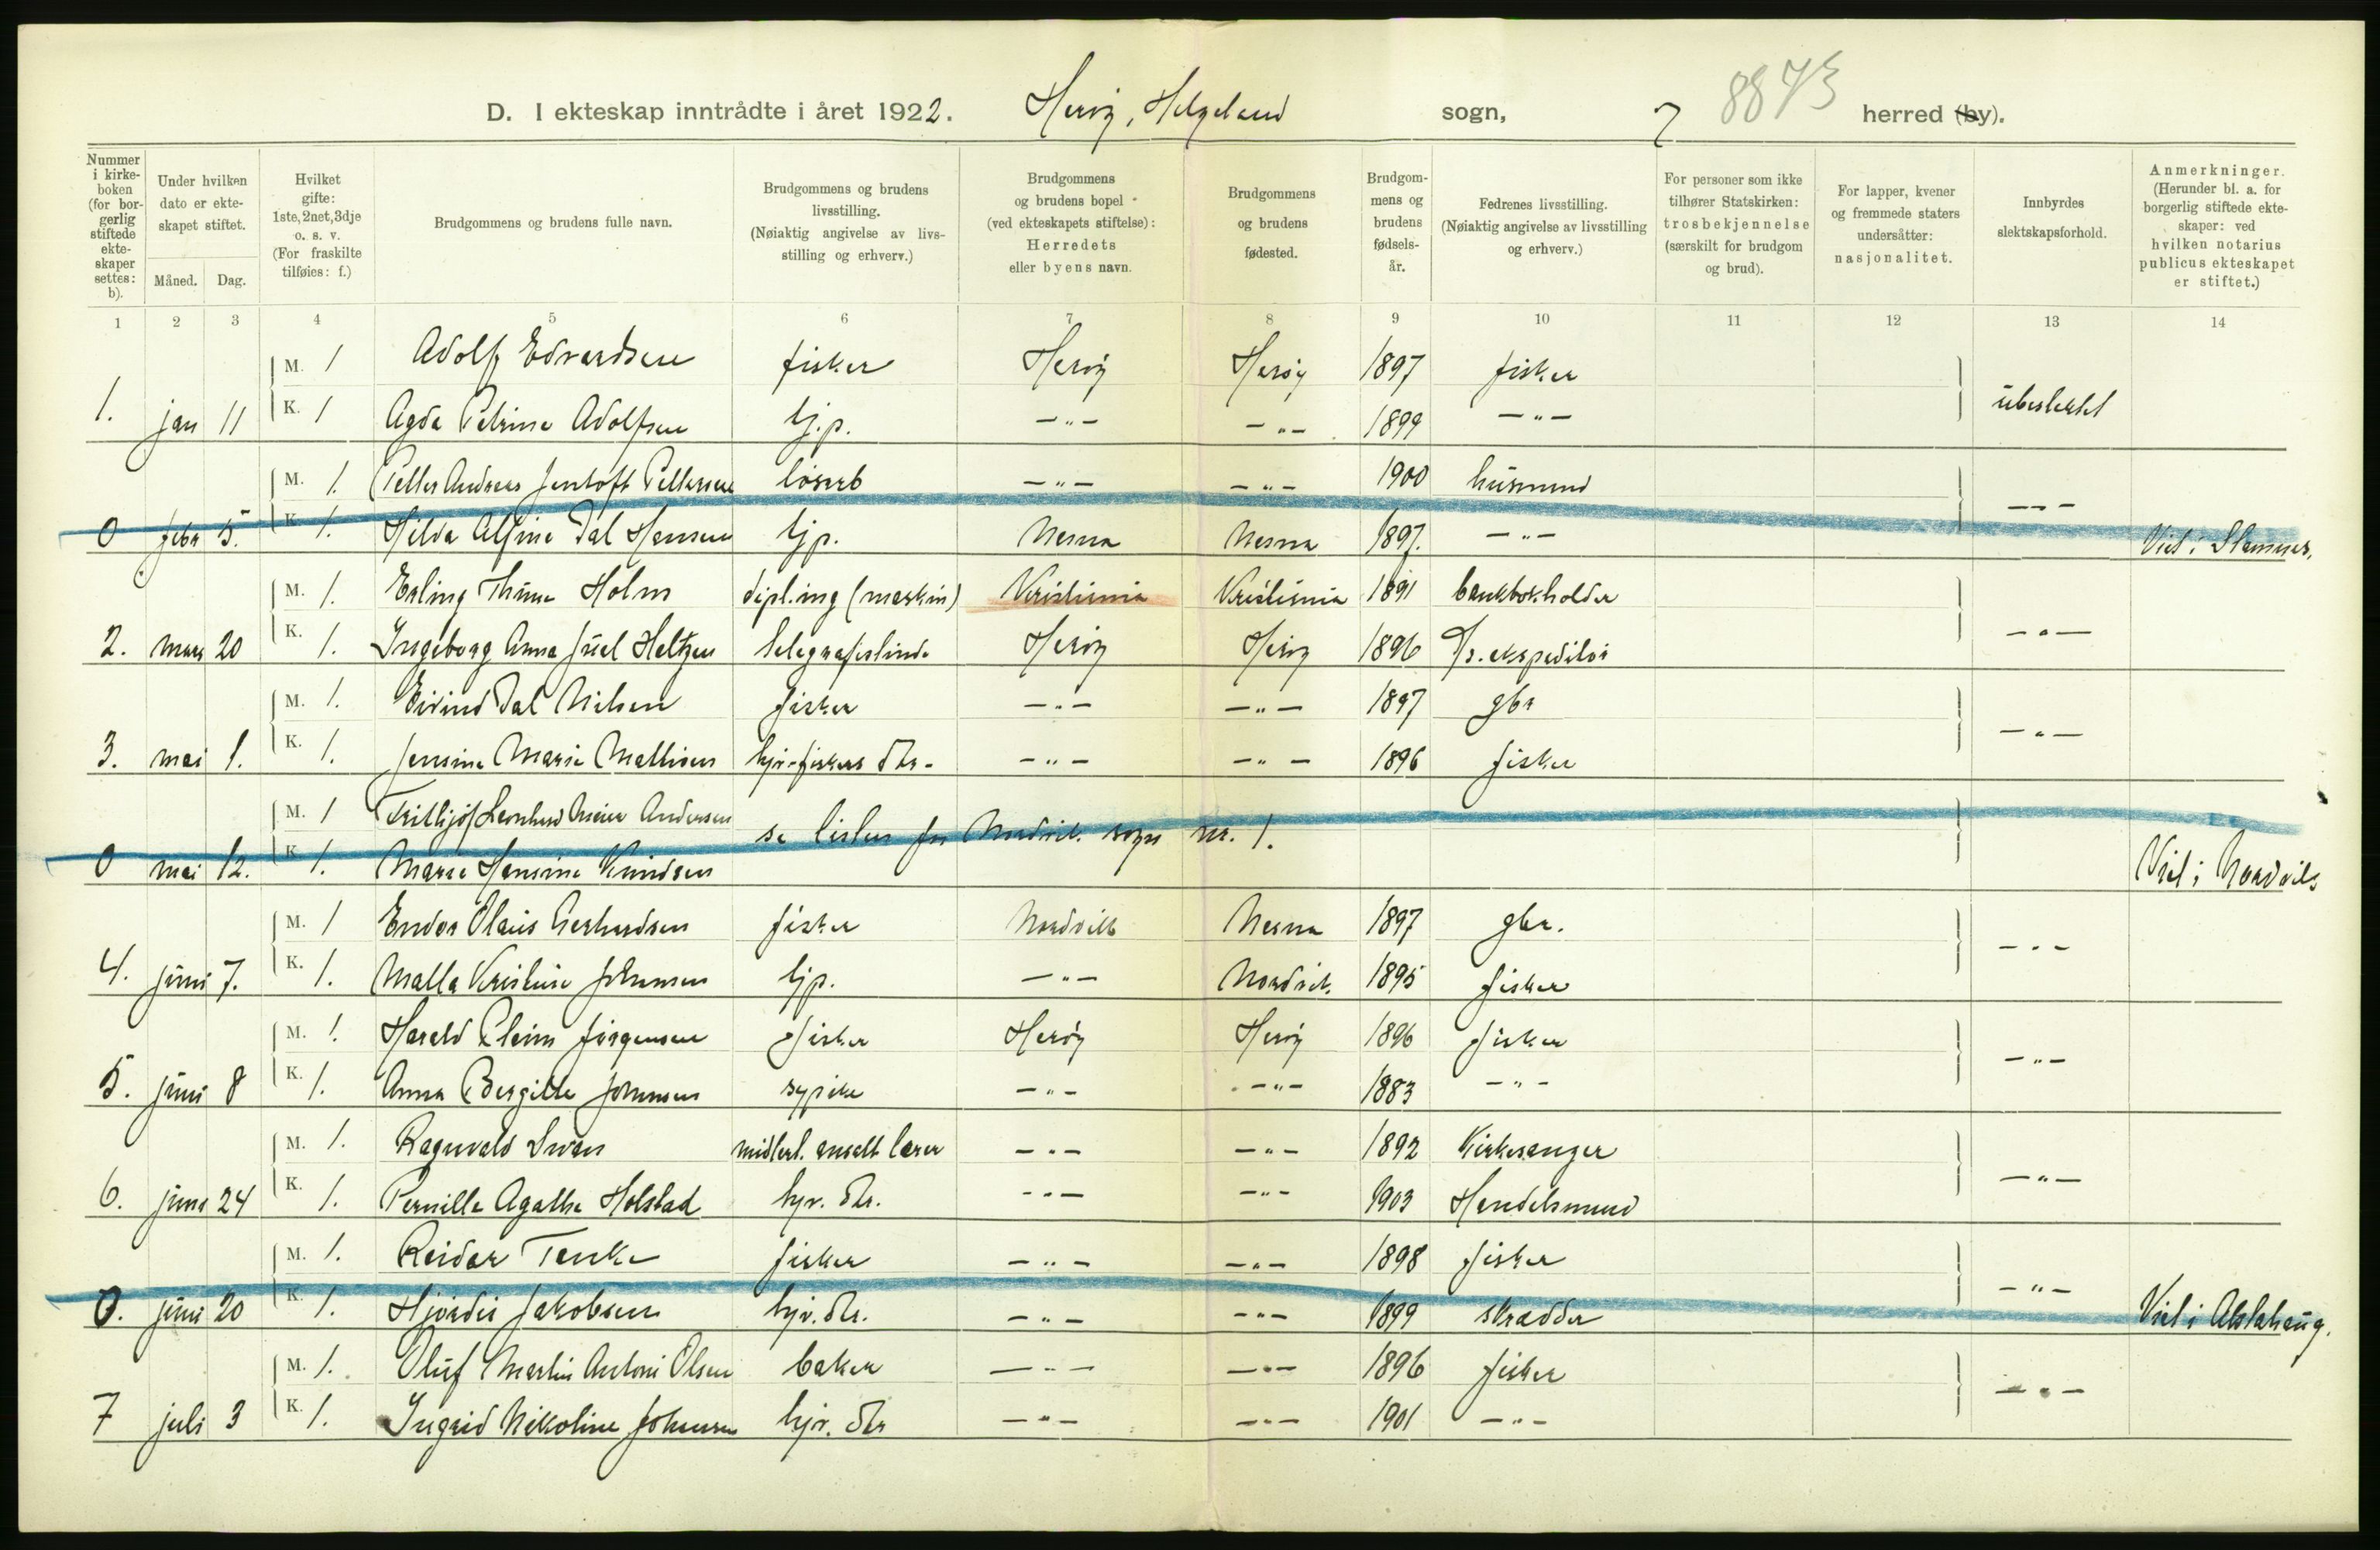 D. I ekteskap inntrådte i året 1922. Herøy, Helgeland sogn, " 8873 herred (by).
Nummer i kirkeboken (for borgerlig stiftede ekteskaper settes: b).
Under hvilken dato er ekteskapet stiftet.
Måned. Dag.
Hvilket gifte: 1ste, 2net, 3dje o. s. v. (For fraskilte tilføies: f.)
Brudgommens og brudens fulle navn.
Brudgommens og brudens livsstilling. (Nøiaktig angivelse av livsstilling og erhverv.)
Brudgommens og brudens bopel (ved ekteskapets stiftelse): Herredets eller byens navn.
Brudgommens og brudens fødested.
Brudgommens og brudens fødselsår.
Fedrenes livsstilling. (Nøiaktig angivelse av livsstilling og erhverv.)
For personer som ikke tilhører Statskirken: trosbekjennelse (særskilt for brudgom og brud).
For lapper, kvener og fremmede staters undersåtter: nasjonalitet.
Innbyrdes slektskapsforhold.
Anmerkninger. (Herunder bl. a. for borgerlig stiftede ekteskaper: ved hvilken notarius publicus ekteskapet er stiftet.)
1 2 3 4 5 6 7 8 9 10 11 12 13 14
M. 1 Adolf Edvardsen fisker Herøy Herøy 1897 fisker
1. jan 11 K. 1 Agda Petrine Adolfsen tj.p. — " — — " — 1899 — " — ubeslektet
M. 1. Petter Andreas Jentoft Pettersen løsarb — " — — " — 1900 husmand
0 febr 5. K. 1. Hilda Alfine Dal Hansen tjp. Nesna Nesna 1897. — " — — " — Viet i Stamnes.
M. 1. Erling Thune Holm dipl.ing (maskin) Kristiania Kristiania 1891 bankbokholder
2. mars 20 K. 1. Ingeborg Anna Juel Heltzen telegrafistinde Herøy Herøy 1896 D/s. ekspeditør — " —
M. 1. Eivind Dal Nilsen fisker — " — — " — 1897 gbr
3. mai 1. K. 1. Jensine Marie Mathisen hjv. fiskers dtr. — " — — " — 1896 fisker — " —
M. 1 Frithjof Leonhard Meier Andersen se listen for Nordvik sogn nr. 1.
0 mai 12. K. 1. Marie Hansine Knudsen Viet i Nordvik
M. 1 Endor Olaus Gerhardsen fisker Nordvik Nesna 1897 gbr.
4. juni 7. K. 1. Malla Kristine Johansen tjp. — " — Nordvik 1895 fisker — " —
M. 1. Harald Pleim Jørgensen fisker Herøy Herøy 1896 fisker
5. juni 8 K. 1. Anna Bergitte Johansen sypike — " — — " — 1883 — " — — " —
M. 1. Ragnvald Svan midlert. ansatt lærer — " — — " — 1892 Kirkesanger
6. juni 24 K. 1. Pernille Agathe Holstad hjv. dtr. — " — — " — 1903 Handelsmand — " —
M. 1. Reidar Tenke fisker — " — — " — 1898 fisker
0. juni 20 K. 1. Hjørdis Jakobsen hjv. dtr. — " — — " — 1899 skrædder — " — Viet i Alstahaug.
M. 1. Oluf Martin Antoni Olsen baker — " — — " — 1896 fisker
7 juli 3 K. 1. Ingrid Nikoline Johansen hjv. dtr — " — — " — 1901 — " — — " —